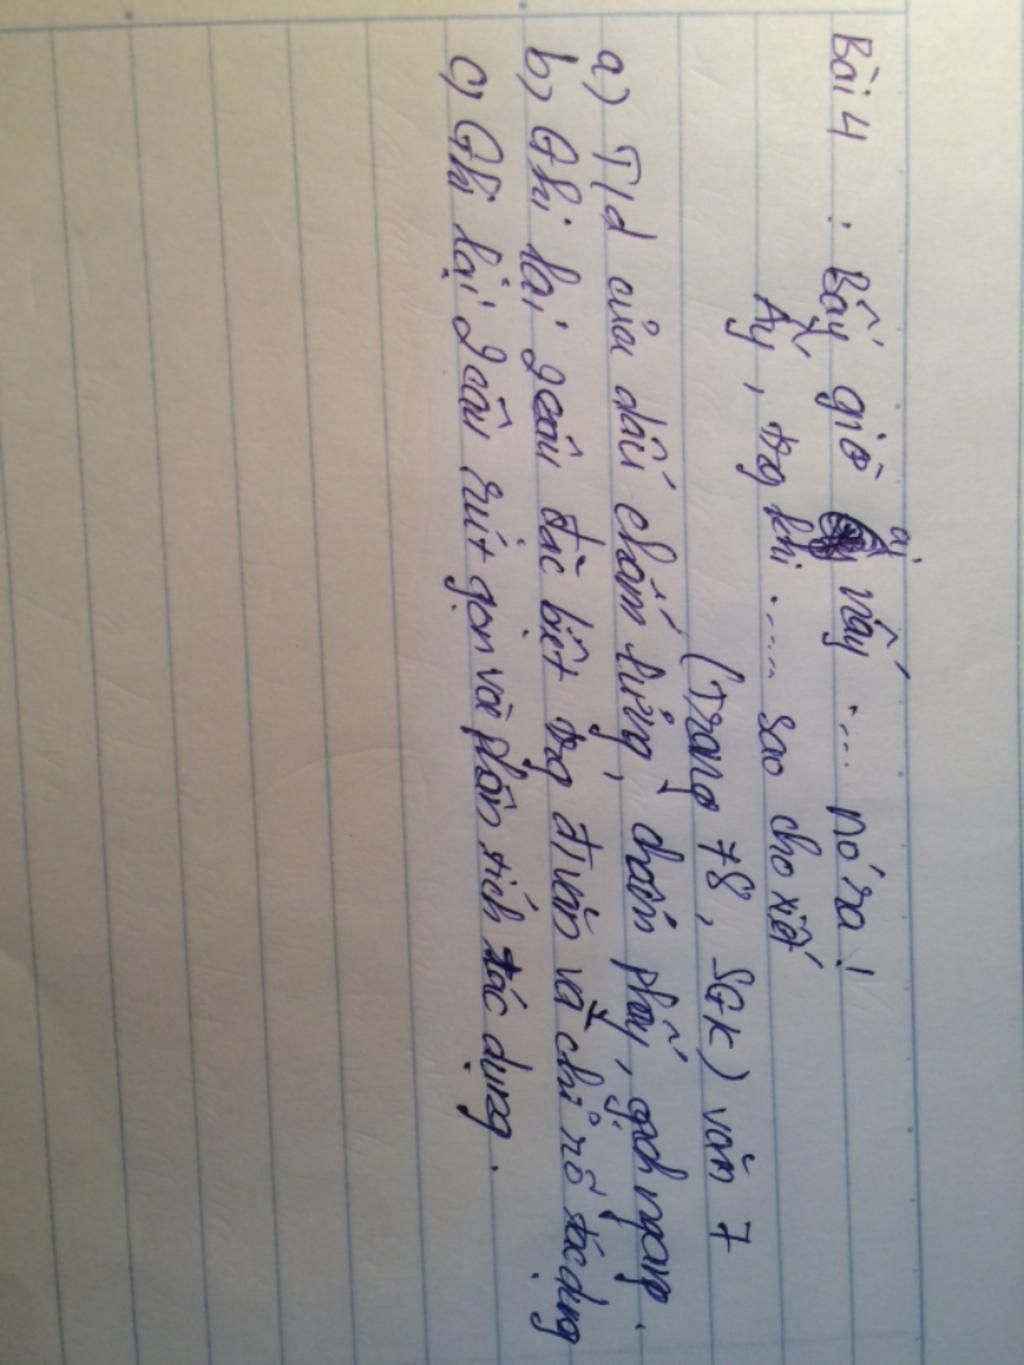 Bài 4 : Bấy giờ ai nấy .... nó ra !
Ấy , trg khi ...... sao cho xiết
(Trang 78, SGK) văn 7
a) T/d của dấu chấm lửng, chấm phẩy, gạch ngang.
b) Ghi lại 2 câu đặc biệt trg đ/văn và chỉ rõ tác dụng
c) Ghi lại 2 câu rút gọn và phân tích tác dụng.